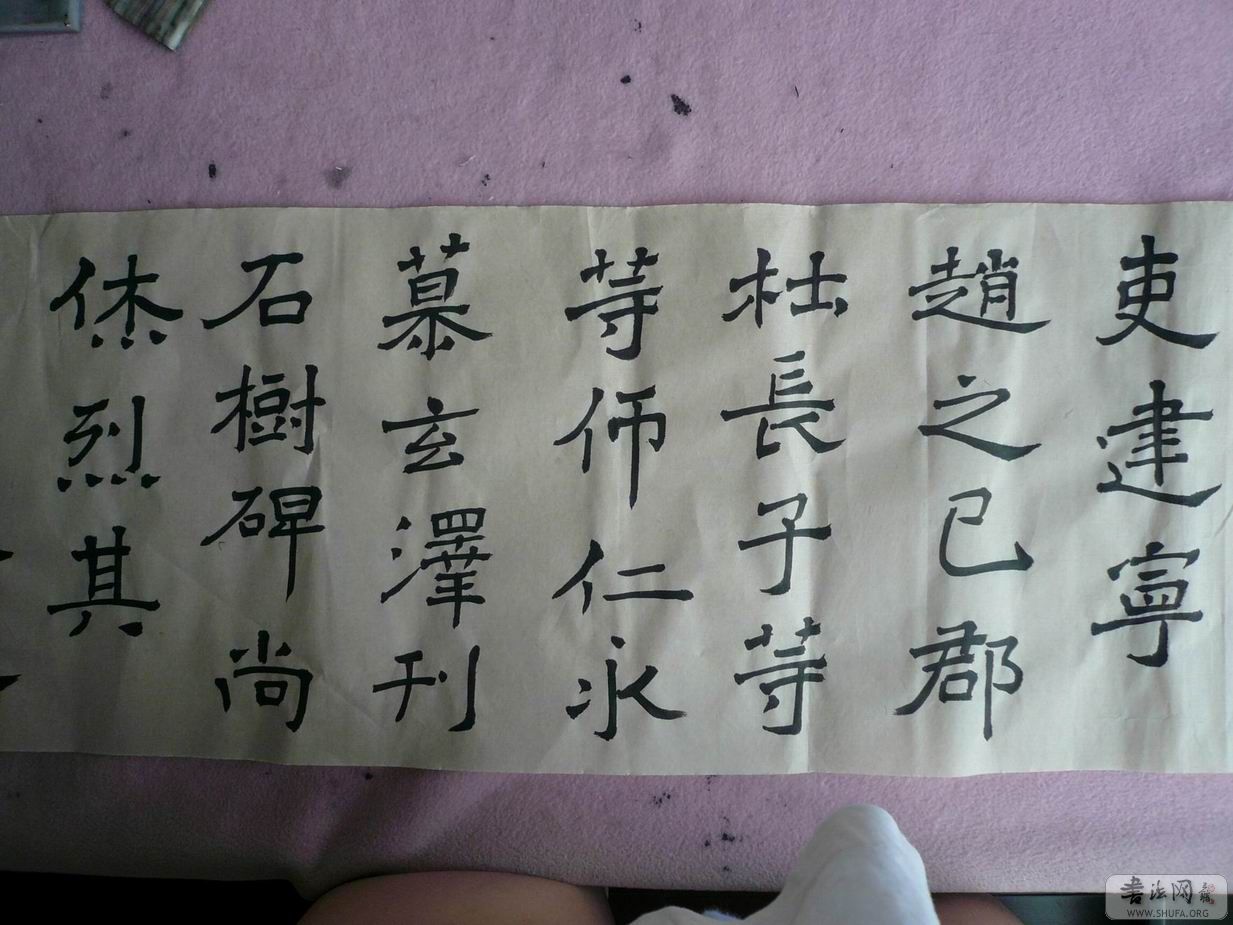 吏建寧
趙之已郡
杜長子等
等師仁永
慕玄澤刊
石樹碑尚
烋烈其
书法网
WWW.SHUFA.ORG